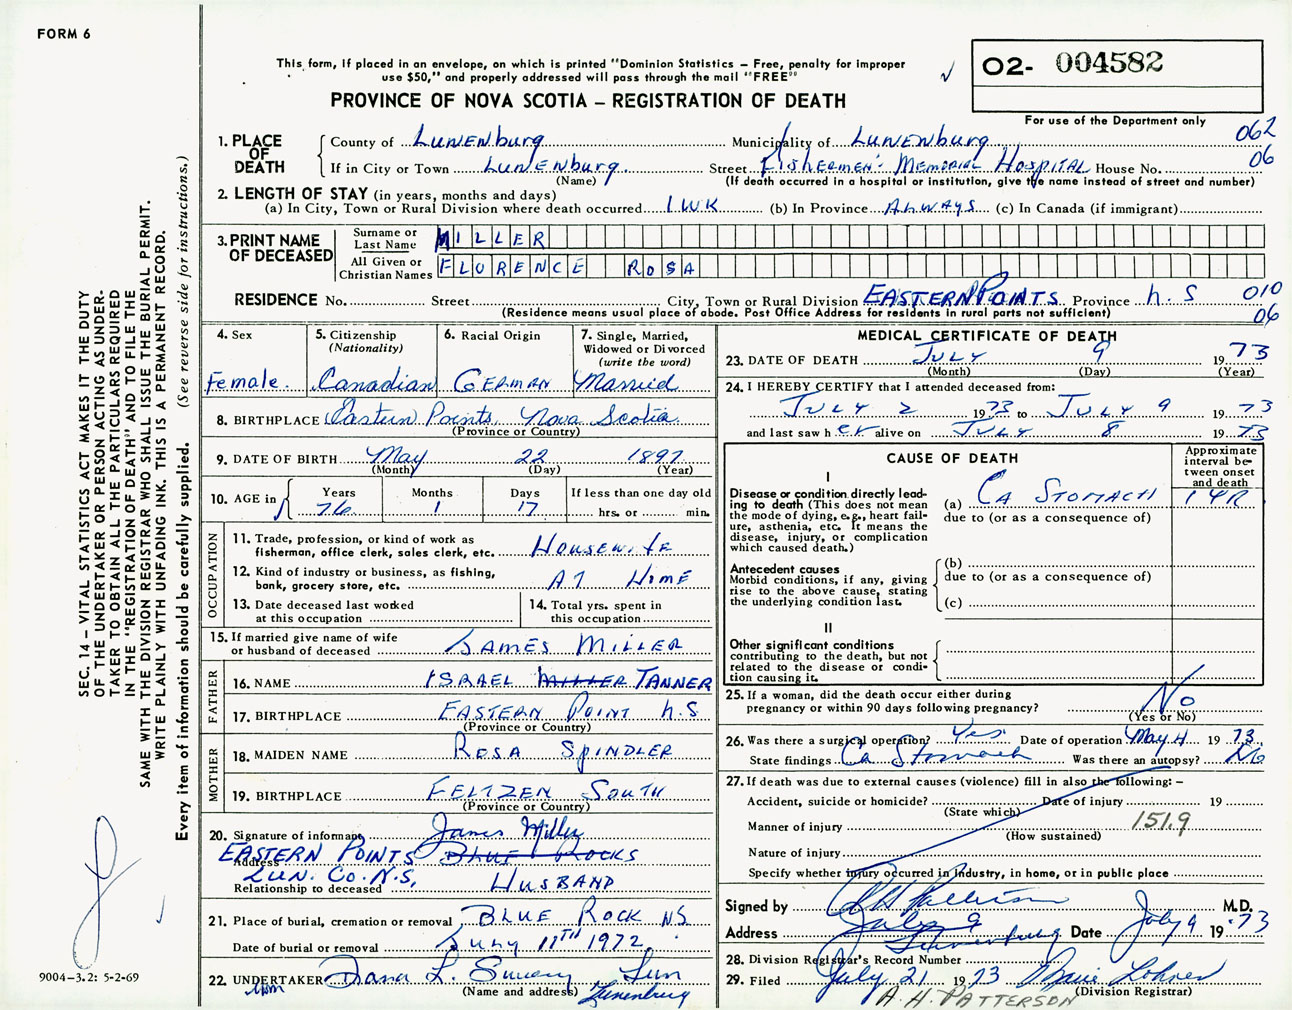 FORM 6
This form, if placed in an envelope, on which is printed "Dominion Statistics – Free, penalty for improper
use $50," and properly addressed will pass through the mail "FREE"
O2- 004582
For use of the Department only
PROVINCE OF NOVA SCOTIA – REGISTRATION OF DEATH
1. PLACE OF DEATH County of Lunenburg Municipality of Lunenburg 062
If in City or Town Lunenburg. Street Fishermen's Memorial Hospital House No. 06
(Name) (If death occurred in a hospital or institution, give the name instead of street and number)
2. LENGTH OF STAY (in years, months and days)
(a) In City, Town or Rural Division where death occurred 1 WK (b) In Province ALWAYS (c) In Canada (if immigrant)
3. PRINT NAME OF DECEASED
Surname or Last Name MILLER
All Given or Christian Names FLORENCE ROSA
RESIDENCE No. Street City, Town or Rural Division EASTERN POINTS Province N.S 010
(Residence means usual place of abode. Post Office Address for residents in rural parts not sufficient) 06
4. Sex Female.
5. Citizenship (Nationality) Canadian
6. Racial Origin GERMAN
7. Single, Married, Widowed or Divorced (write the word) Married
8. BIRTHPLACE Eastern Points, Nova Scotia
(Province or Country)
9. DATE OF BIRTH May 22 1897
(Month) (Day) (Year)
10. AGE in Years 76 Months 1 Days 17 If less than one day old hrs. or min.
OCCUPATION
11. Trade, profession, or kind of work as fisherman, office clerk, sales clerk, etc. HOUSEWIFE
12. Kind of industry or business, as fishing, bank, grocery store, etc. AT HOME
13. Date deceased last worked at this occupation
14. Total yrs. spent in this occupation
15. If married give name of wife or husband of deceased JAMES MILLER
FATHER
16. NAME ISRAEL MILLER TANNER
17. BIRTHPLACE EASTERN POINT N.S
(Province or Country)
MOTHER
18. MAIDEN NAME ROSA SPINDLER
19. BIRTHPLACE FELTZEN SOUTH
(Province or Country)
20. Signature of informant James Miller
Address EASTERN POINTS BLUE ROCKS
LUN. CO. N.S,
Relationship to deceased HUSBAND
21. Place of burial, cremation or removal BLUE ROCK NS
Date of burial or removal July 11TH 1972.
22. UNDERTAKER Dana L. Sweeny
(Name and address) Lunenburg
MEDICAL CERTIFICATE OF DEATH
23. DATE OF DEATH JULY 9 1973
(Month) (Day) (Year)
24. I HEREBY CERTIFY that I attended deceased from:
JULY 2 1973 to JULY 9 1973
and last saw her alive on JULY 8 1973
CAUSE OF DEATH
Approximate interval between onset and death
I
Disease or condition directly leading to death (This does not mean the mode of dying, e.g., heart failure, asthenia, etc. It means the disease, injury, or complication which caused death.)
(a) CA STOMACH 1 YR
due to (or as a consequence of)
Antecedent causes
Morbid conditions, if any, giving rise to the above cause, stating the underlying condition last.
(b)
due to (or as a consequence of)
(c)
II
Other significant conditions
contributing to the death, but not related to the disease or condition causing it.
25. If a woman, did the death occur either during pregnancy or within 90 days following pregnancy? No
(Yes or No)
26. Was there a surgical operation? Yes Date of operation May 4 1973.
State findings Ca Stomach Was there an autopsy? No
27. If death was due to external causes (violence) fill in also the following: –
Accident, suicide or homicide? Date of injury 19
(State which)
Manner of injury 151.9
(How sustained)
Nature of injury
Specify whether injury occurred in industry, in home, or in public place
Signed by M.D.
Address July 9 Lunenburg Date July 9 1973
28. Division Registrar's Record Number
29. Filed July 21 1973 Marie Lohnes
(Division Registrar)
A. H. PATTERSON
SEC. 14 – VITAL STATISTICS ACT MAKES IT THE DUTY
OF THE UNDERTAKER OR PERSON ACTING AS UNDER-
TAKER TO OBTAIN ALL THE PARTICULARS REQUIRED
IN THE "REGISTRATION OF DEATH" AND TO FILE THE
SAME WITH THE DIVISION REGISTRAR WHO SHALL ISSUE THE BURIAL PERMIT.
WRITE PLAINLY WITH UNFADING INK. THIS IS A PERMANENT RECORD.
Every item of information should be carefully supplied. (See reverse side for instructions.)
9004-3.2: 5-2-69